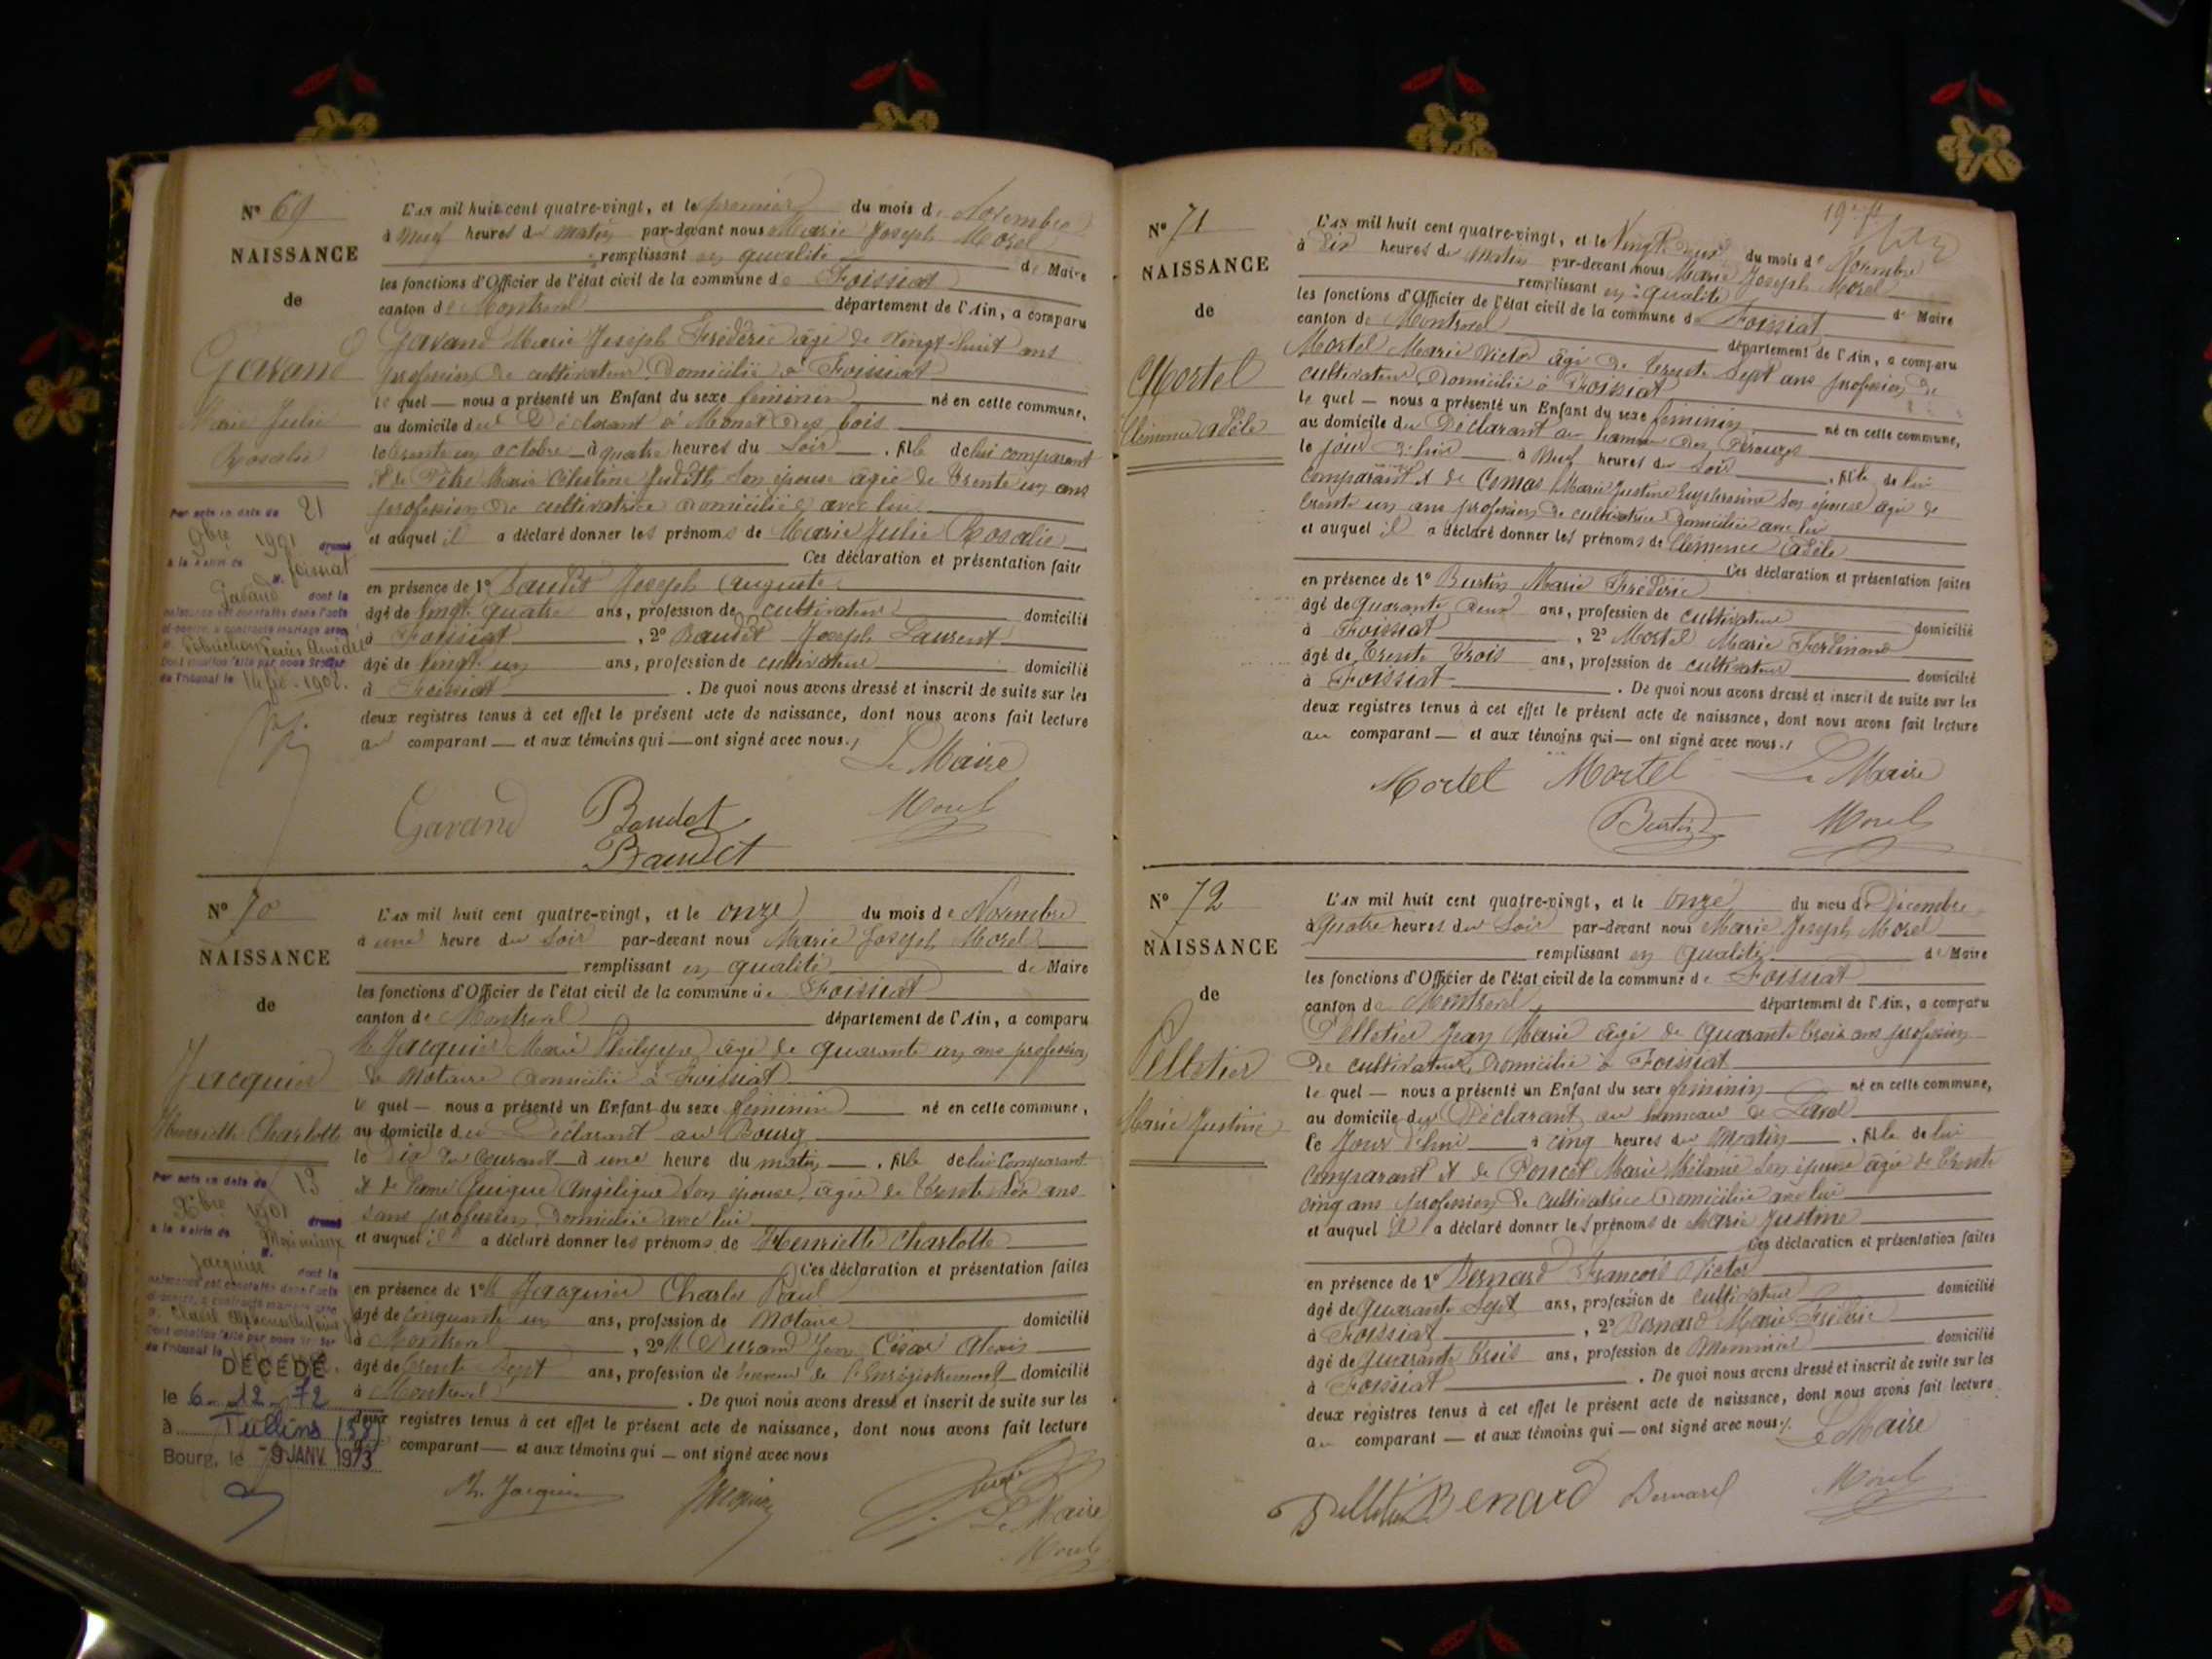 N° 69
NAISSANCE
de
Gavand
Marie Julie
Rosalie
Par acte en date du 21
9bre 1901 dressé
à la Mairie de Foissiat
Gavand dont la
naissance est constatée dans l'acte
ci-contre, a contracté mariage avec
Louis Amédée
Dont mention faite par nous Greffier
du Tribunal le 1902.
L'an mil huit cent quatre-vingt, et le premier du mois de Novembre
à Neuf heures du matin par-devant nous Marie Joseph Morel
remplissant en qualité de Maire
les fonctions d'Officier de l'état civil de la commune de Foissiat
canton de Montrevel département de l'Ain, a comparu
Gavand Marie Joseph Frédéric âgé de vingt-huit ans
profession de cultivateur Domicilié à Foissiat
le quel — nous a présenté un Enfant du sexe féminin né en cette commune,
au domicile du Déclarant à Monet des bois
le trente un octobre à quatre heures du Soir, fille de lui comparant
et de Pitre Marie Célestine Judith Son épouse âgée de Trente un ans
profession de cultivatrice domiciliée avec lui
et auquel il a déclaré donner les prénoms de Marie Julie Rosalie
Ces déclaration et présentation faite
en présence de 1° Baudet Joseph Auguste
âgé de Vingt quatre ans, profession de cultivateur domicilié
à Foissiat, 2° Baudet Joseph Laurent
âgé de Vingt un ans, profession de cultivateur domicilié
à Foissiat. De quoi nous avons dressé et inscrit de suite sur les
deux registres tenus à cet effet le présent acte de naissance, dont nous avons fait lecture
au comparant — et aux témoins qui — ont signé avec nous.
Le Maire
Gavand Baudet Morel
Baudet
N° 70
NAISSANCE
de
Jacquier
Henriette Charlotte
Par acte en date du 13
Xbre 1901 dressé
à la Mairie de Meximieux
Jacquier dont la
naissance est constatée dans l'acte
ci-contre, a contracté mariage avec
Dont mention faite par nous Greffier
du Tribunal le
DÉCÉDÉ
le 6-12-72
à Tullins (38)
Bourg, le -9 JANV. 1973
L'an mil huit cent quatre-vingt, et le onze du mois de Novembre
à une heure du Soir par-devant nous Marie Joseph Morel
remplissant en qualité de Maire
les fonctions d'Officier de l'état civil de la commune de Foissiat
canton de Montrevel département de l'Ain, a comparu
M. Jacquier Marie Philippe âgé de quarante un ans profession
de Notaire domicilié à Foissiat
le quel — nous a présenté un Enfant du sexe féminin né en cette commune,
au domicile du Déclarant au Bourg
le dix du Courant à une heure du matin, fille de lui Comparant
et de Dame Guigue Angélique Son épouse, âgée de Trente Six ans
sans profession, Domiciliée avec lui
et auquel il a déclaré donner les prénoms de Henriette Charlotte
Ces déclaration et présentation faites
en présence de 1° M Jacquier Charles Paul
âgé de Cinquante un ans, profession de Notaire domicilié
à Montrevel, 2° M Durand Jean César Alexis
âgé de trente Sept ans, profession de Receveur de l'Enregistrement domicilié
à Montrevel. De quoi nous avons dressé et inscrit de suite sur les
deux registres tenus à cet effet le présent acte de naissance, dont nous avons fait lecture
comparant — et aux témoins qui — ont signé avec nous
Ph. Jacquier Jacquier
Le Maire
Morel
19e ft
N° 71
NAISSANCE
de
Mortel
Clémence Adèle
L'an mil huit cent quatre-vingt, et le Vingt deux du mois de Novembre
à Dix heures du Matin par-devant nous Marie Joseph Morel
remplissant en qualité de Maire
les fonctions d'Officier de l'état civil de la commune de Foissiat
canton de Montrevel département de l'Ain, a comparu
Mortel Marie Victor âgé de Trente Sept ans profession de
cultivateur, Domicilié à Foissiat
le quel — nous a présenté un Enfant du sexe féminin né en cette commune,
au domicile du Déclarant au hameau des Pérouzes
le jour d'hier à Neuf heures du Soir, fille de lui
Comparant et de Comas Marie Justine Euphrosine Son épouse âgée de
trente un ans profession de cultivatrice Domiciliée avec lui
et auquel il a déclaré donner les prénoms de Clémence Adèle
Ces déclaration et présentation faites
en présence de 1° Burtin Marie Frédéric
âgé de quarante deux ans, profession de cultivateur domicilié
à Foissiat, 2° Mortel Marie Ferdinand
âgé de Trente trois ans, profession de cultivateur domicilié
à Foissiat. De quoi nous avons dressé et inscrit de suite sur les
deux registres tenus à cet effet le présent acte de naissance, dont nous avons fait lecture
au comparant — et aux témoins qui — ont signé avec nous.
Mortel Mortel Le Maire
Burtin Morel
N° 72
NAISSANCE
de
Pelletier
Marie Justine
L'an mil huit cent quatre-vingt, et le onze du mois de Décembre
à quatre heures du Soir par-devant nous Marie Joseph Morel
remplissant en qualité de Maire
les fonctions d'Officier de l'état civil de la commune de Foissiat
canton de Montrevel département de l'Ain, a comparu
Pelletier Jean Marie âgé de quarante trois ans profession
de cultivateur, Domicilié à Foissiat
le quel — nous a présenté un Enfant du sexe féminin né en cette commune,
au domicile du Déclarant au hameau de
le Jour d'hui à cinq heures du Matin, fille de lui
Comparant et de Poncet Marie Mélanie Son épouse âgée de trente
cinq ans profession de Cultivatrice Domiciliée avec lui
et auquel il a déclaré donner les prénoms de Marie Justine
Ces déclaration et présentation faites
en présence de 1° Bernard François Victor
âgé de quarante Sept ans, profession de Cultivateur domicilié
à Foissiat, 2° Bernard Marie Frédéric
âgé de quarante trois ans, profession de Menuisier domicilié
à Foissiat. De quoi nous avons dressé et inscrit de suite sur les
deux registres tenus à cet effet le présent acte de naissance, dont nous avons fait lecture
au comparant — et aux témoins qui — ont signé avec nous.
Le Maire
Pelletier Benard Bernard Morel